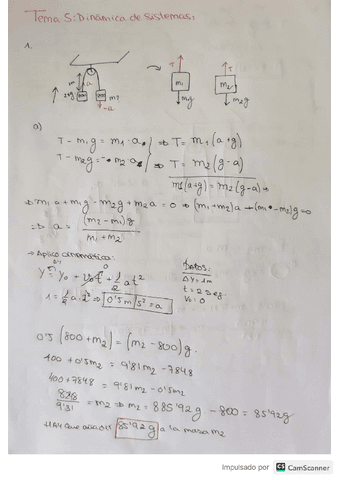 Tema 5: Dinámica de sistemas:
1.
a
m2
-a
T
m1
m1g
T
m2
m2g
a)
T - m1g = m1 · a
T - m2g = - m2 · a
⇒ T = m1(a+g)
⇒ T = m2(g-a)
m1(a+g) = m2(g-a)
⇒ m1a + m1g - m2g + m2a = 0 ⇒ (m1+m2)a + (m1-m2)g = 0
⇒ a = (m2-m1)g / m1+m2
→ Aplico cinemática:
y = y0 + v0t + 1/2 at²
1 = 1/2 a · 2² ⇒ 0'5 m/s² = a
DATOS:
Δy = 1m
t = 2 seg
v0 = 0
0'5 (800 + m2) = (m2 - 800) g
400 + 0'5m2 = 9'81 m2 - 7848
400 + 7848 = 9'81m2 - 0'5m2
8248 / 9'31 = m2 ⇒ m2 = 885'92 g - 800 = 85'92 g
HAY que añadir 85'92 g a la masa m2
Impulsado por CS CamScanner